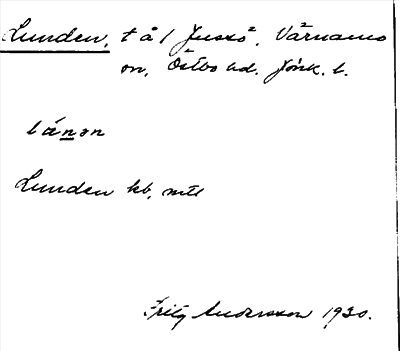 Lunden, t å 1 Jussö, Värnamo
sn, Östbo hd. Jönk. l.
lánən
Lunden kb, mtl
Fritz Andersson 1930.